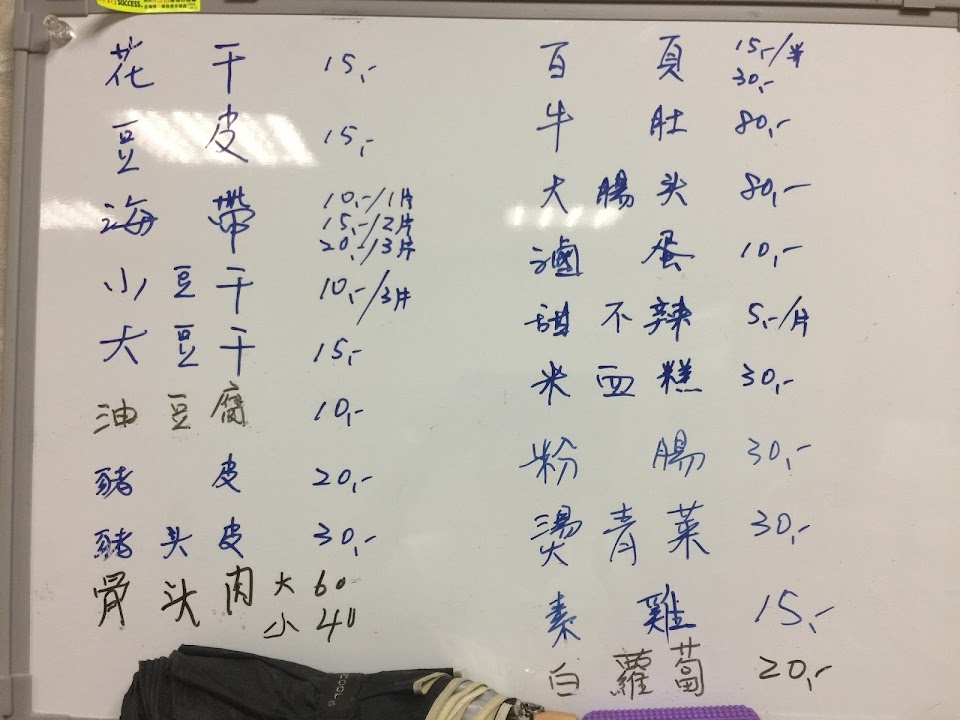 SUCCESS
花干 15,-
豆皮 15,-
海帶 10,-/1片
15,-/2片
20,-/3片
小豆干 10,-/3片
大豆干 15,-
油豆腐 10,-
豬皮 20,-
豬头皮 30,-
骨头肉 大 60
小 40
百頁 15,-/半
30,-
牛肚 80,-
大腸头 80,-
滷蛋 10,-
甜不辣 5,-/片
米血糕 30,-
粉腸 30,-
燙青菜 30,-
素雞 15,-
白蘿蔔 20,-
COOLS